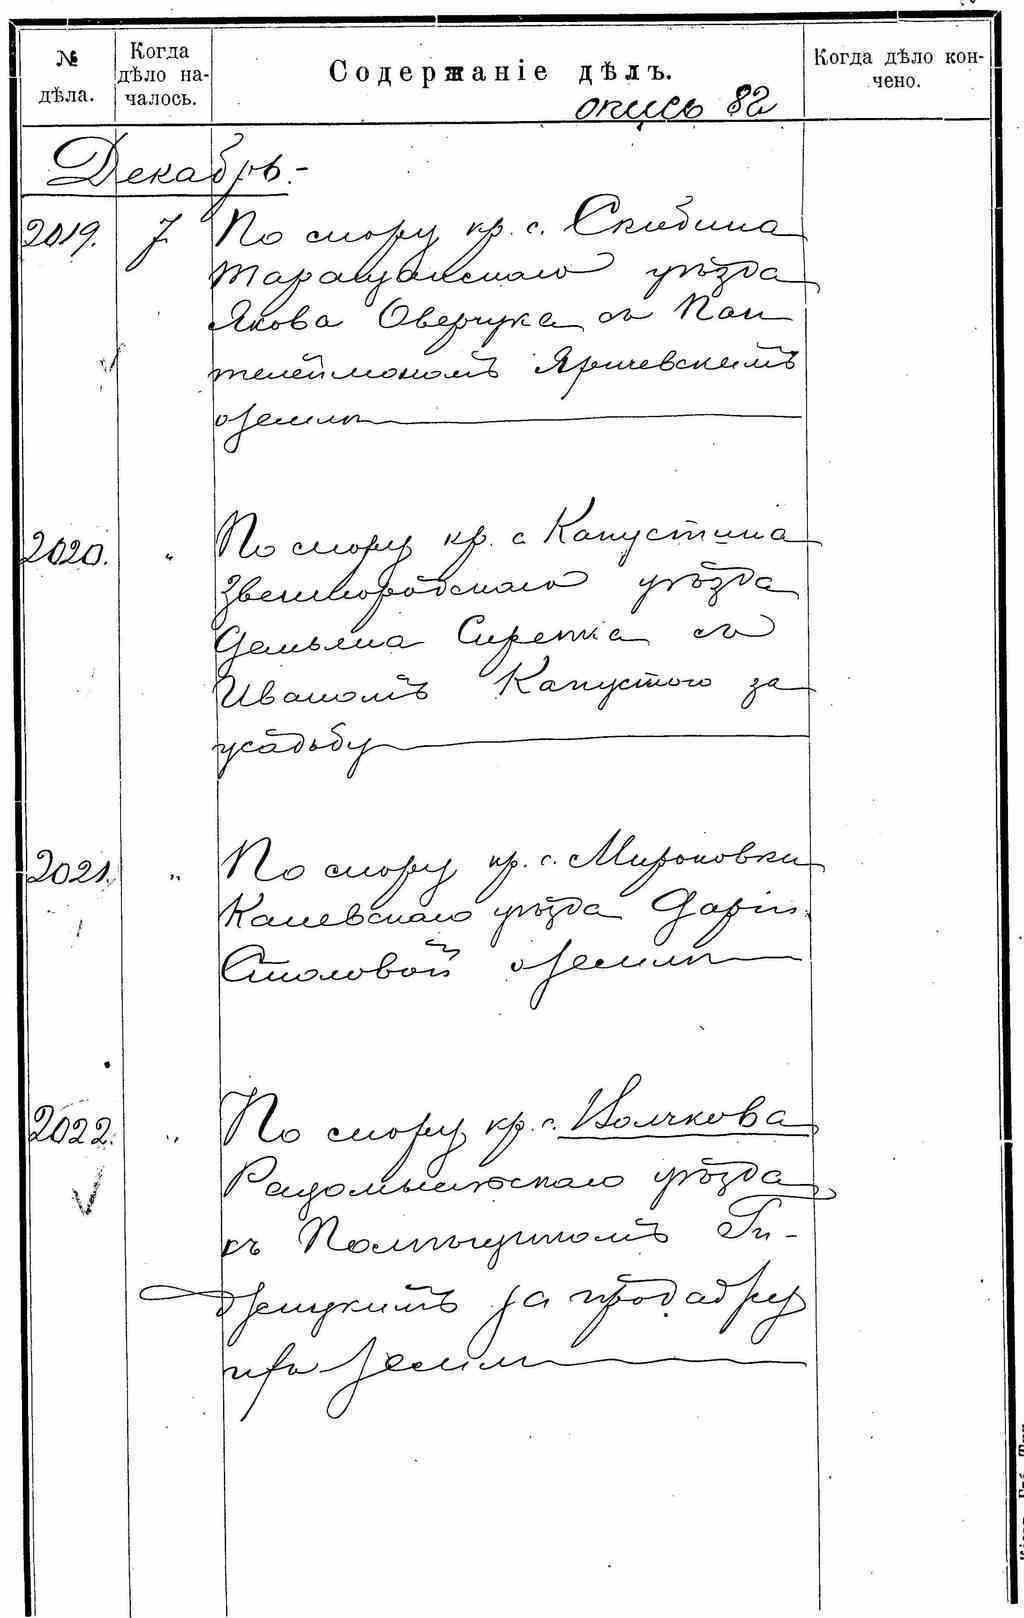 № дѣла.
Когда дѣло на-
чалось.
Содержаніе дѣлъ.
Когда дѣло кон-
чено.
опись 82
Декабрь.-
2019. 7 По спору кр. с. Скибина
Таращанскаго уѣзда
Якова Оверчука съ Пан
телеймономъ Яричевскимъ
о землѣ
2020. " По спору кр. с Капустина
Звенигородскаго уѣзда
Демьяна Сиренка съ
Иваномъ Капустою за
усадьбу
2021. " По спору кр. с. Мироновки
Каневскаго уѣзда Даріи
Столовой о землѣ
2022. " По спору кр. с. Волчкова
Радомысльскаго уѣзда
съ за
землѣ